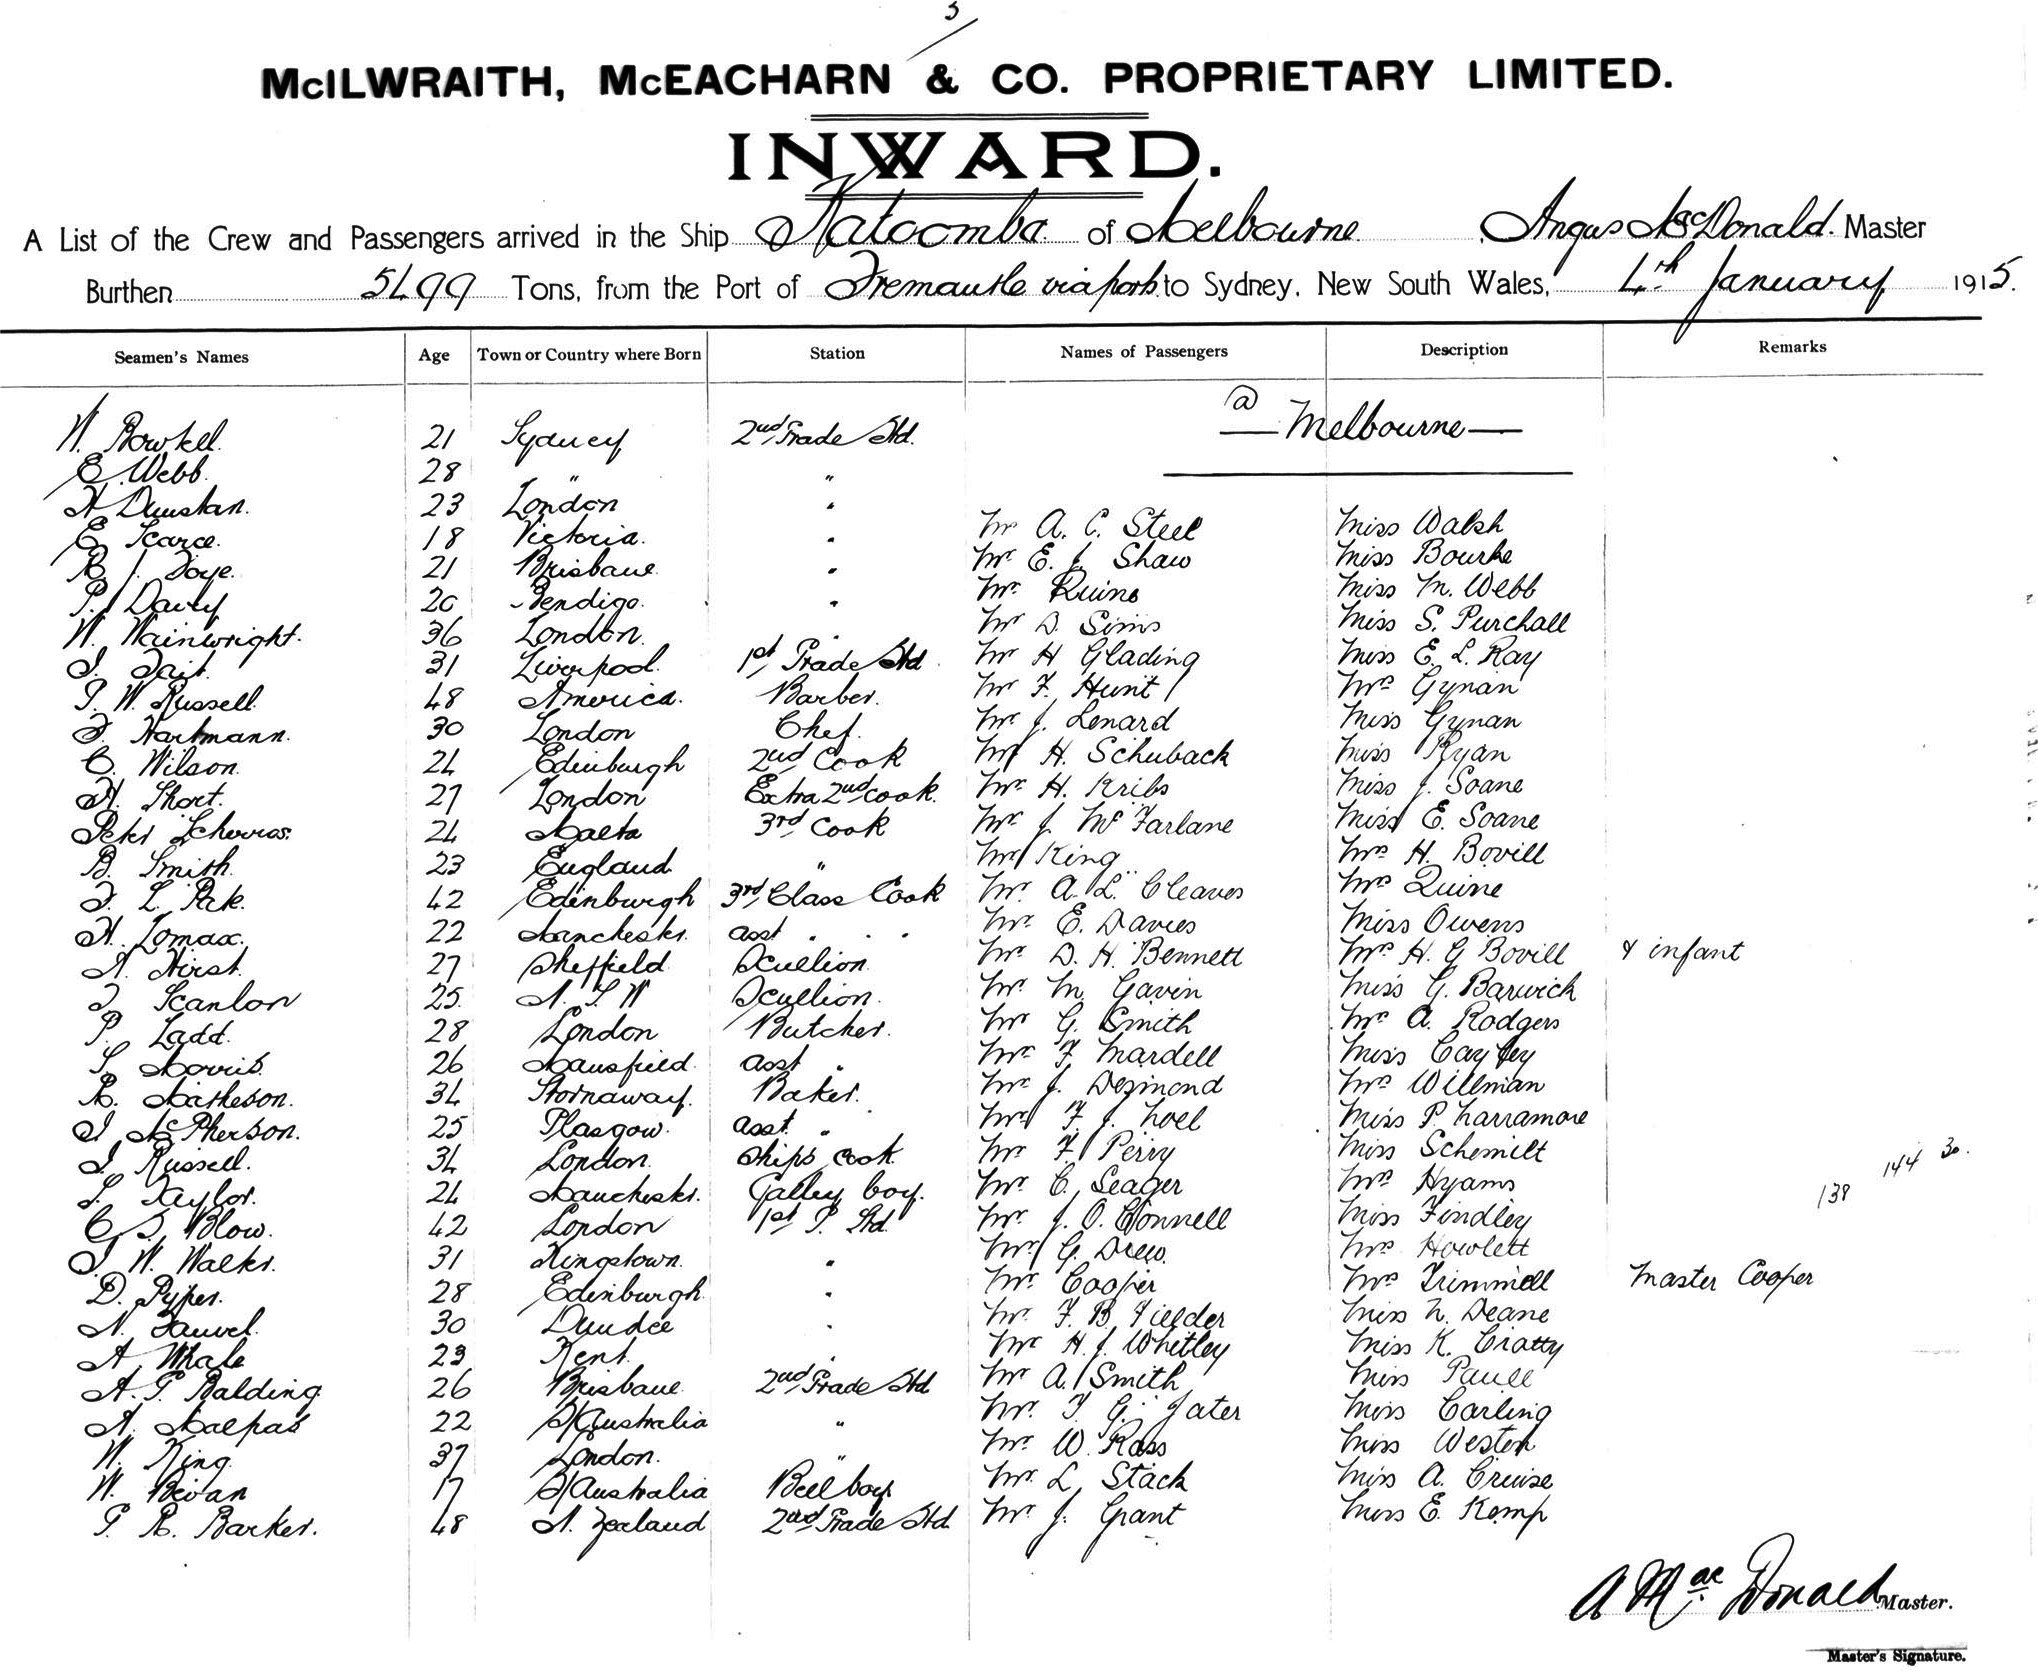 3/
McILWRAITH, McEACHARN & CO. PROPRIETARY LIMITED.
INWARD.
A List of the Crew and Passengers arrived in the Ship Katoomba of Melbourne Angus McDonald. Master
Burthen 5499 Tons, from the Port of Fremantle via ports to Sydney, New South Wales, 4th January 1915.
Seamen's Names Age Town or Country where Born Station Names of Passengers Description Remarks
@
W. Bowkell. 21 Sydney 2nd Grade Std. — Melbourne —
E. Webb. 28 " "
H Dunstan. 23 London "
E. Scarce. 18 Victoria. " Mr A. C. Steel Miss Walsh
R J. Foye. 21 Brisbane " Mr. E. J. Shaw Miss Bourke
P. Davey 20 Bendigo. " Mr. Ruine Miss M. Webb
W. Wainwright. 36 London. " Mr D. Sims Miss S. Purchall
J. Tait. 31 Liverpool. 1st Grade Std. Mr H Glading Miss E. L. Ray
G. W. Russell. 48 America. Barber. Mr F. Hunt Mrs Gynan
F. Hartmann. 30 London Chef. Mr. J. Lenard Miss Gynan
C. Wilson. 24 Edinburgh 2nd Cook Mr H. Schuback Miss Ryan
H. Short. 27 London Extra 2nd cook. Mr. H. Kribs Miss J. Soane
Peter 24 Malta 3rd Cook Mr J McFarlane Miss E. Soane
B. Smith. 23 England " Mr King Mrs H. Bovill
J. L. Pak. 42 Edinburgh 3rd Class Cook Mr. A. L. Cleaves Mrs Quine
H. Lomax. 22 Manchester. asst " " " Mr. E. Davies Miss Owens
A. Hirst. 27 Sheffield. Scullion. Mr. D. H. Bennett Mrs H. G Bovill & infant
J. Scanlon 25. N. S. W Scullion. Mr. M. Gavin Miss G. Barwick
P. Ladd. 28 London Butcher. Mr G. Smith Mrs A. Rodgers
S. Morris. 26 Mansfield. asst " Mr. F Mardell Miss Cayley
R. Matheson. 34 Stornaway. Baker. Mr. J. Desmond Mrs Willman
J. McPherson. 25 Glasgow. asst. " Mr F. J. Noel Miss P. Larramore
J. Russell. 34 London. Ships Cook. Mr F. Perry Miss Schemilt 144 30.
S. Taylor. 24 Manchester. Galley boy. Mr. C. Seager Mrs Hyams 138
C S. Blow. 42 London 1st G. Std. Mr. J. O. Connell Miss Findley
J W. Walker. 31 Kingstown. " Mr G. Drew. Mrs Howlett
D. Pyper. 28 Edinburgh. " Mr. Cooper Mrs Trimmell Master Cooper
N. Fauvel. 30 Dundee " Mr. F. B. Fielder Miss N. Deane
A. Whale 23 Kent. " Mr H. J. Whitley Miss K. Cratty
A. G. Balding 26 Brisbane 2nd Grade Std Mr A. Smith Miss Paull
A. Malpas 22 S/Australia " Mr. F. G. Jater Miss Carling
W. King. 37 London. " Mr. W. Ross Miss Weston
W. Bevan 17 S/Australia Bell boy. Mr. L. Stack Miss A. Cruise
G. R. Barker. 48 N. Zealand 2nd Grade Std. Mr J. Grant Miss E. Kemp
A MacDonald Master.
Master's Signature.